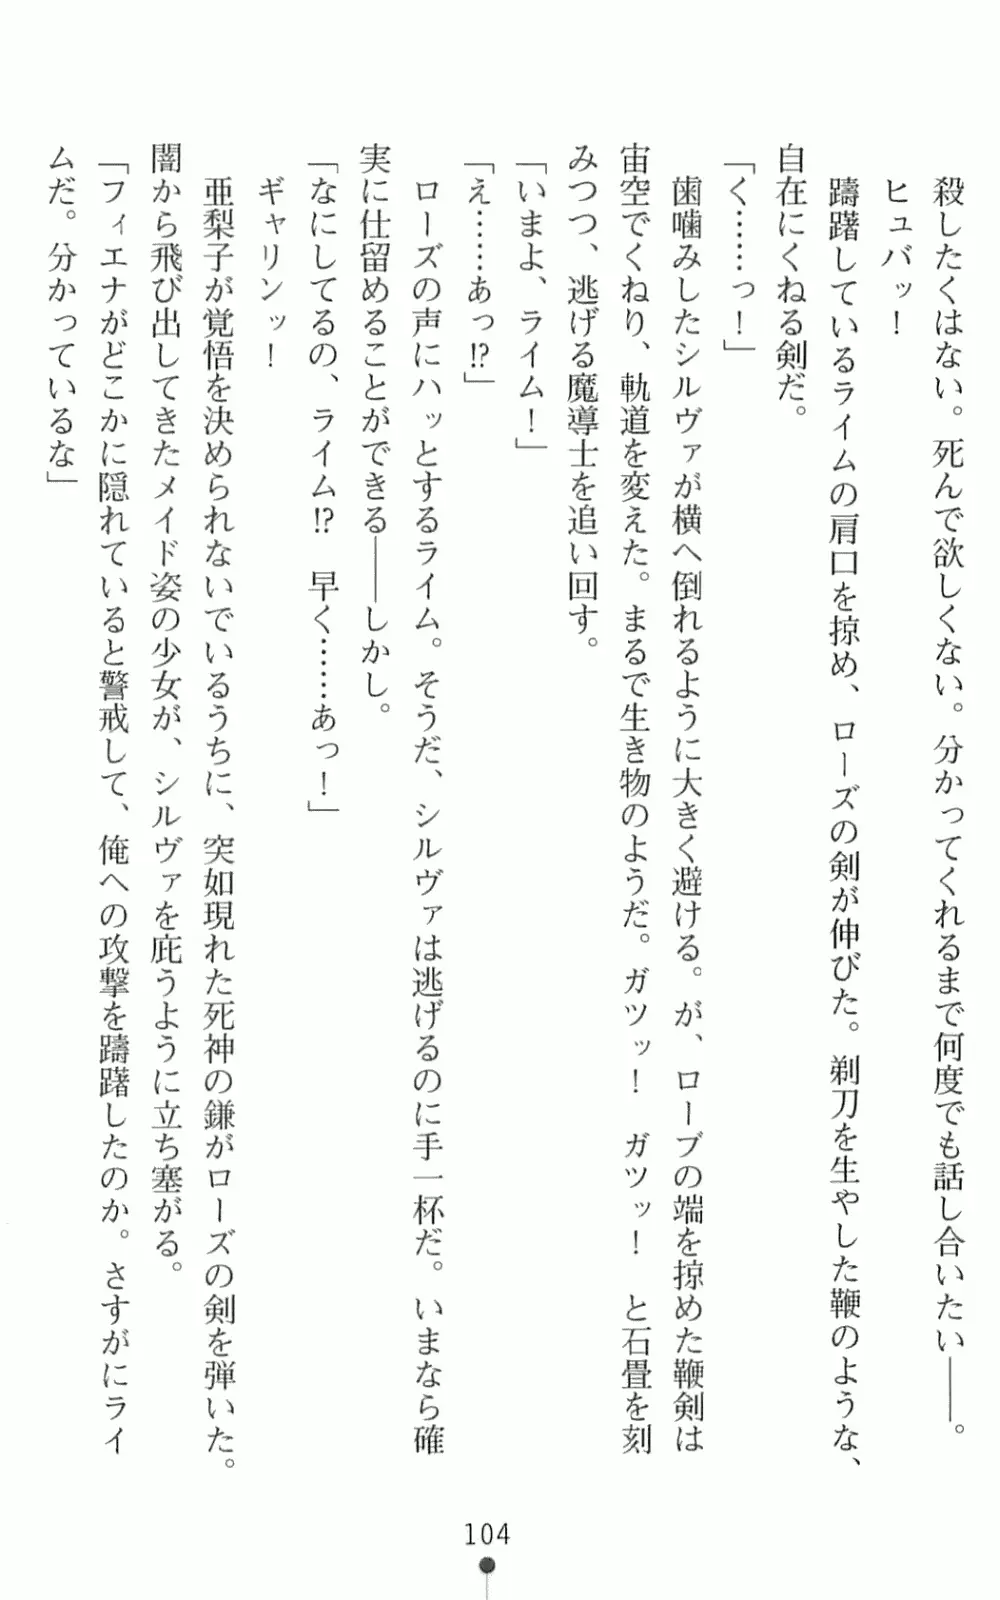 殺したくはない。死んで欲しくない。分かってくれるまで何度でも話し合いたい――。
ヒュバッ！
躊躇しているライムの肩口を掠め、ローズの剣が伸びた。剃刀を生やした鞭のような、
自在にくねる剣だ。
「く……っ！」
歯噛みしたシルヴァが横へ倒れるように大きく避ける。が、ローブの端を掠めた鞭剣は
宙空でくねり、軌道を変えた。まるで生き物のようだ。ガツッ！　ガツッ！　と石畳を刻
みつつ、逃げる魔導士を追い回す。
「いまよ、ライム！」
「え……あっ!?」
ローズの声にハッとするライム。そうだ、シルヴァは逃げるのに手一杯だ。いまなら確
実に仕留めることができる――しかし。
「なにしてるの、ライム!?　早く……あっ！」
ギャリンッ！
亜梨子が覚悟を決められないでいるうちに、突如現れた死神の鎌がローズの剣を弾いた。
闇から飛び出してきたメイド姿の少女が、シルヴァを庇うように立ち塞がる。
「フィエナがどこかに隠れていると警戒して、俺への攻撃を躊躇したのか。さすがにライ
ムだ。分かっているな」
104